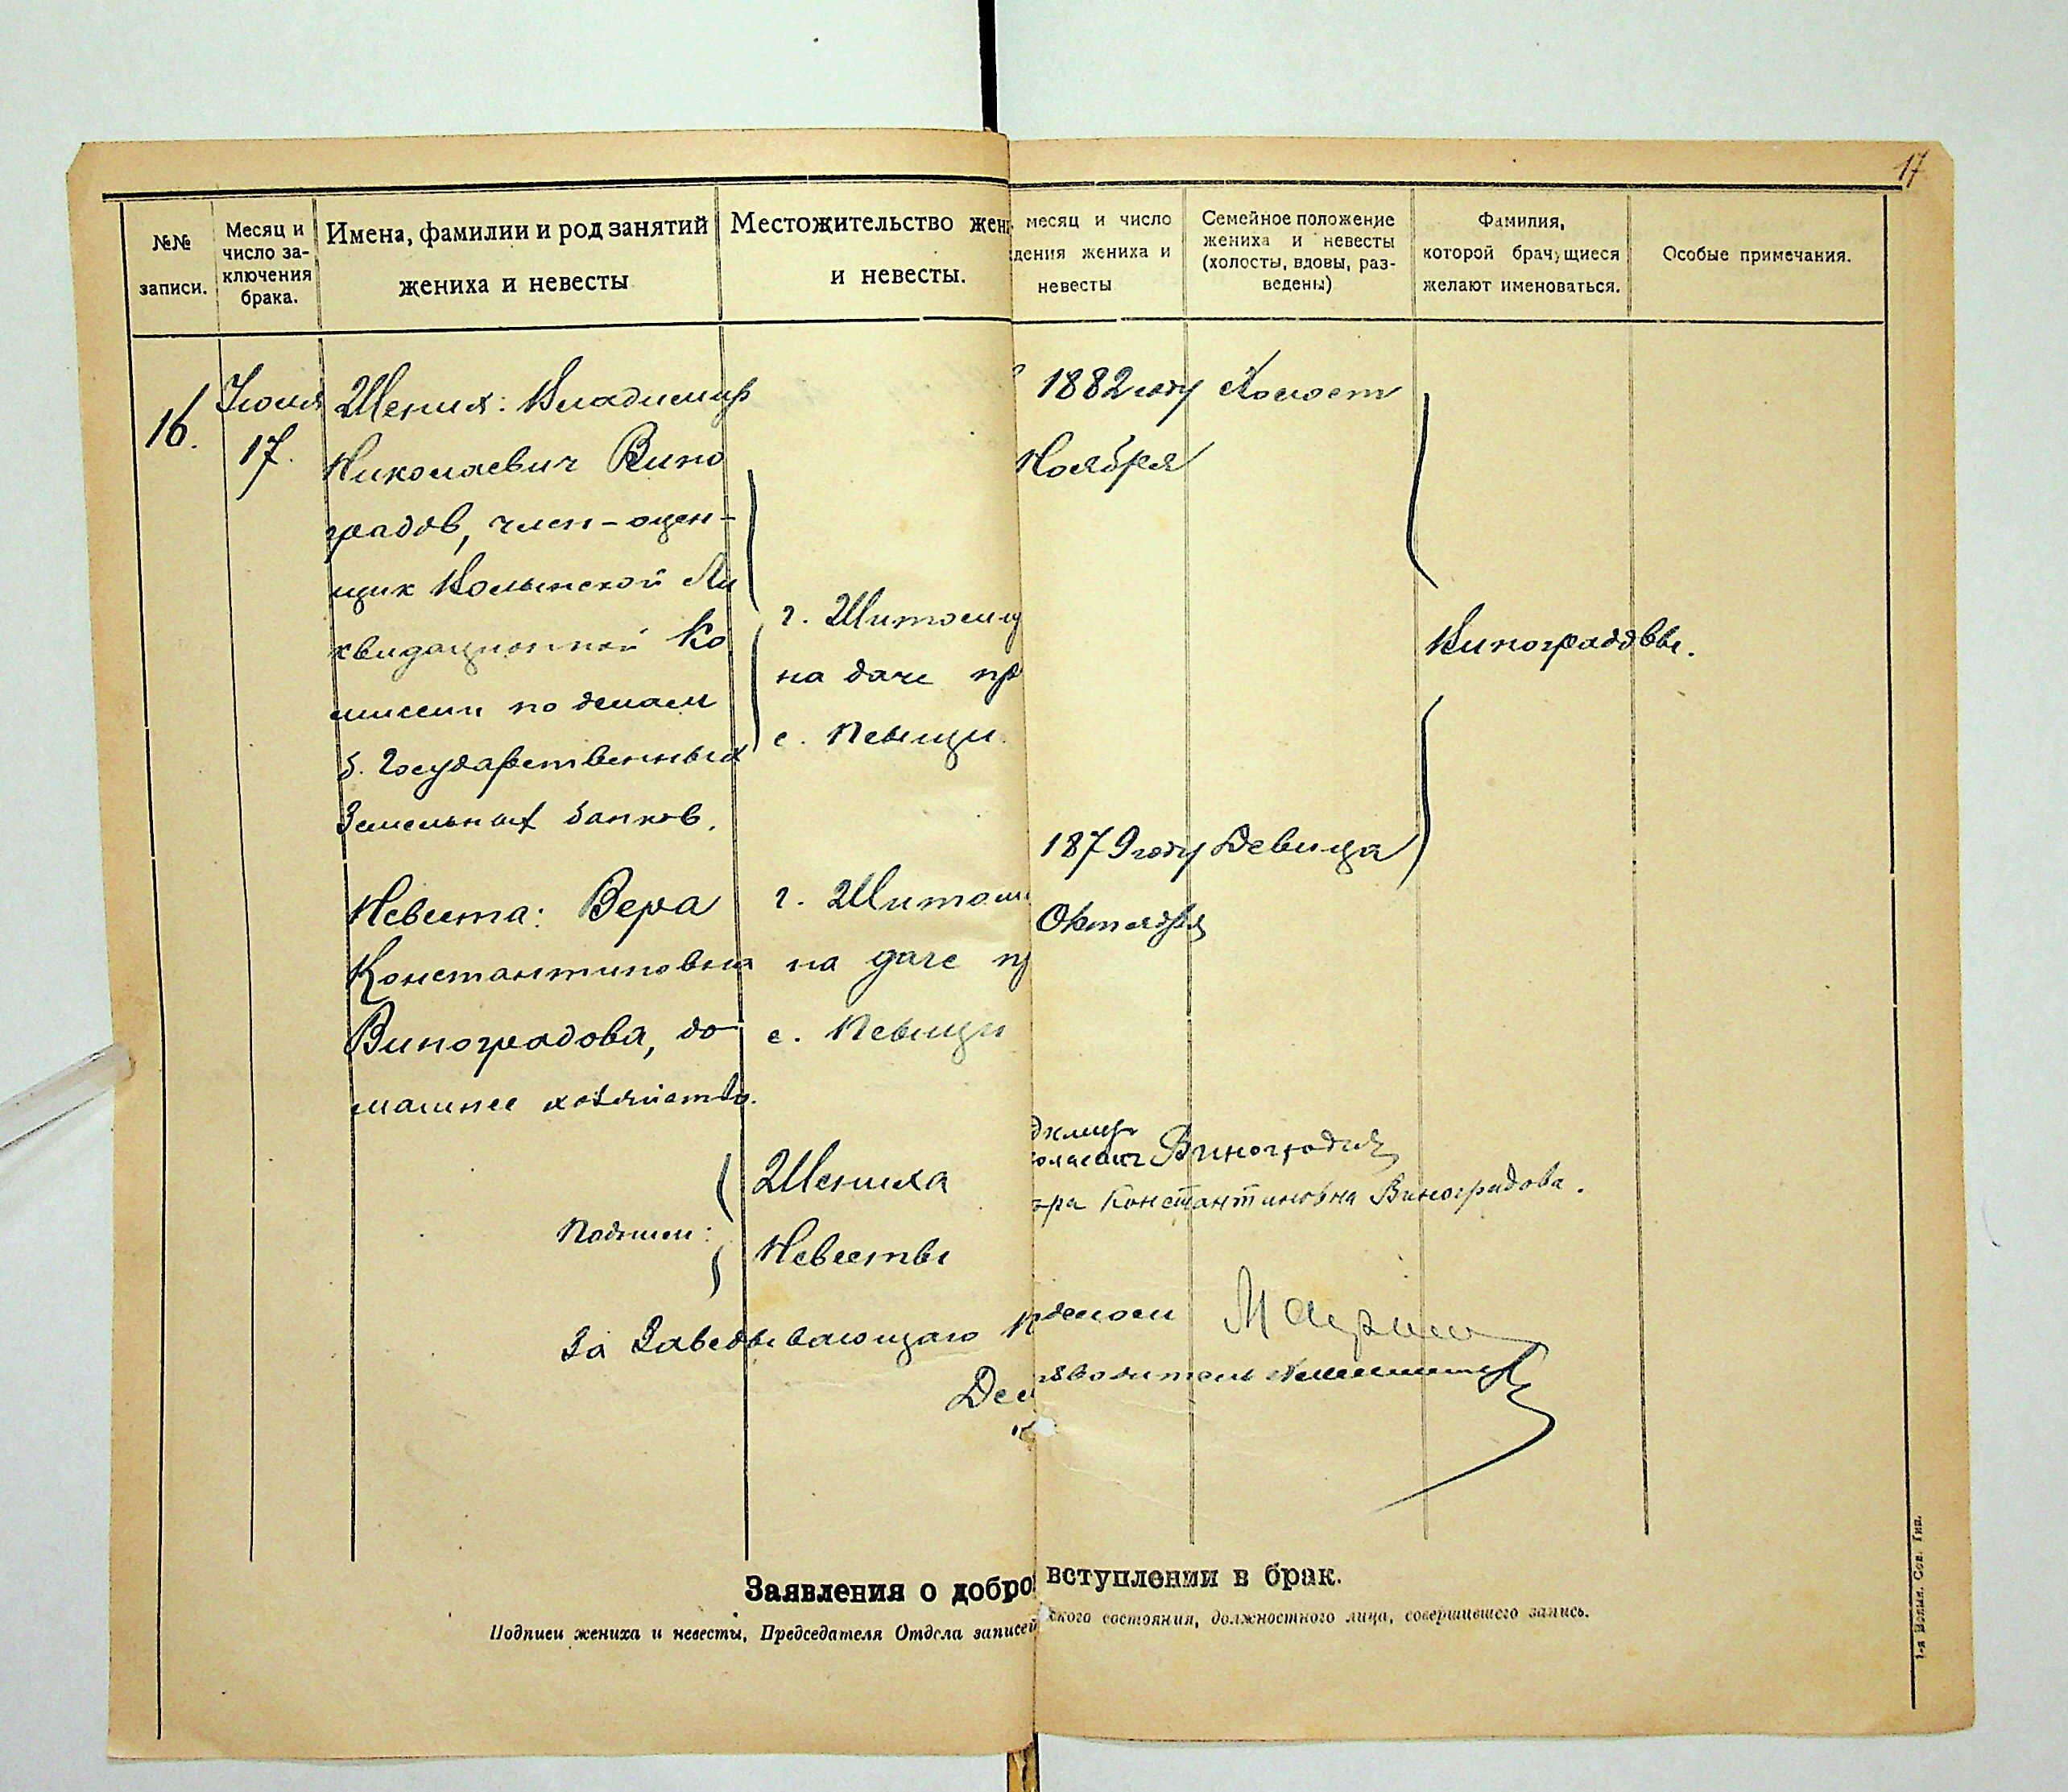 17
№№ записи.
Месяц и число за-ключения брака.
Имена, фамилии и род занятий
жениха и невесты
Местожительство жени
и невесты.
месяц и число
дения жениха и
невесты
Семейное положение
жениха и невесты
(холосты, вдовы, раз-
ведены)
Фамилия,
которой брачущиеся
желают именоваться.
Особые примечания.
16.
Июля
17.
Жених: Владимир
Николаевич Вино
градов, член-оцен-
щик Волынской Ли
квидационной Ко
миссии по делам
б. Государственных
Земельных банков.
г. Житомир
на даче пр
с.
1882 году
Ноября
Холост
Виноградовы.
Невеста: Вера
Константиновна
Виноградова, до
машнее хозяйство.
г. Житоми
на даче пр
с.
1879 году
Октября
Девица
Подписи:
Жениха
Виноградов
Невесты
ра Константиновна Виноградова.
За Заведывающаго
Дел
изводитель
Заявления о добро вступлении в брак.
Подписи жениха и невесты, Председателя Отдела записей ского состояния, должностного лица, совершившего запись.
1-я Волын. Сов. Тип.